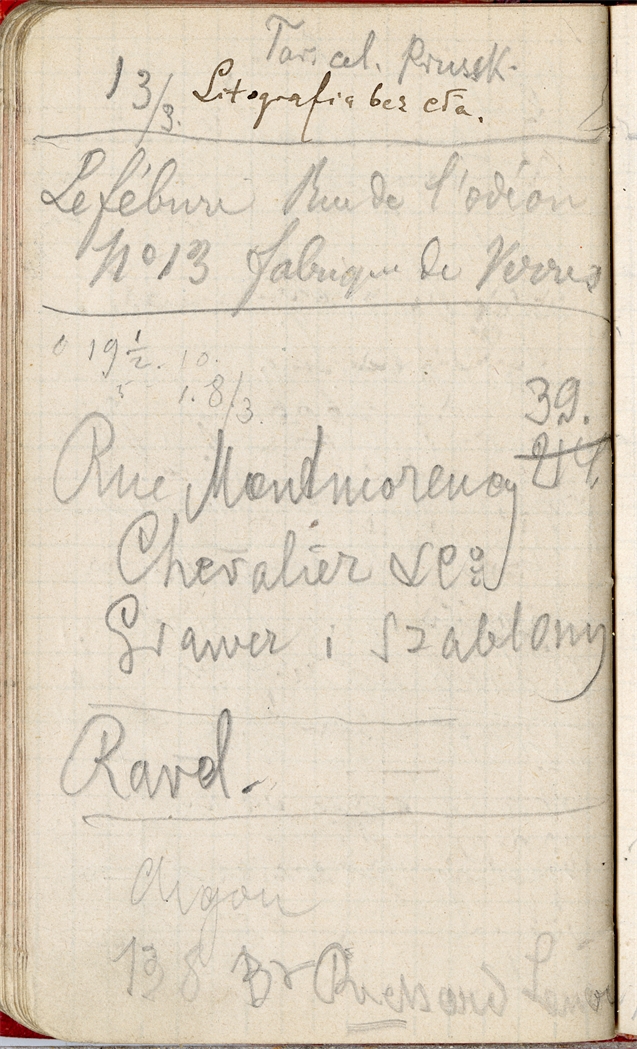 13/3.
Litografia bez cła.
Lefébure Rue de l'odéon
No 13 fabrique de Verres
19 1/2. 10.
1.8/3.
39.
Rue Montmorency 24.
Chevalier & Co
Grawer i szablony
Ravel.
Argou
138 Bd Richard Lenoi